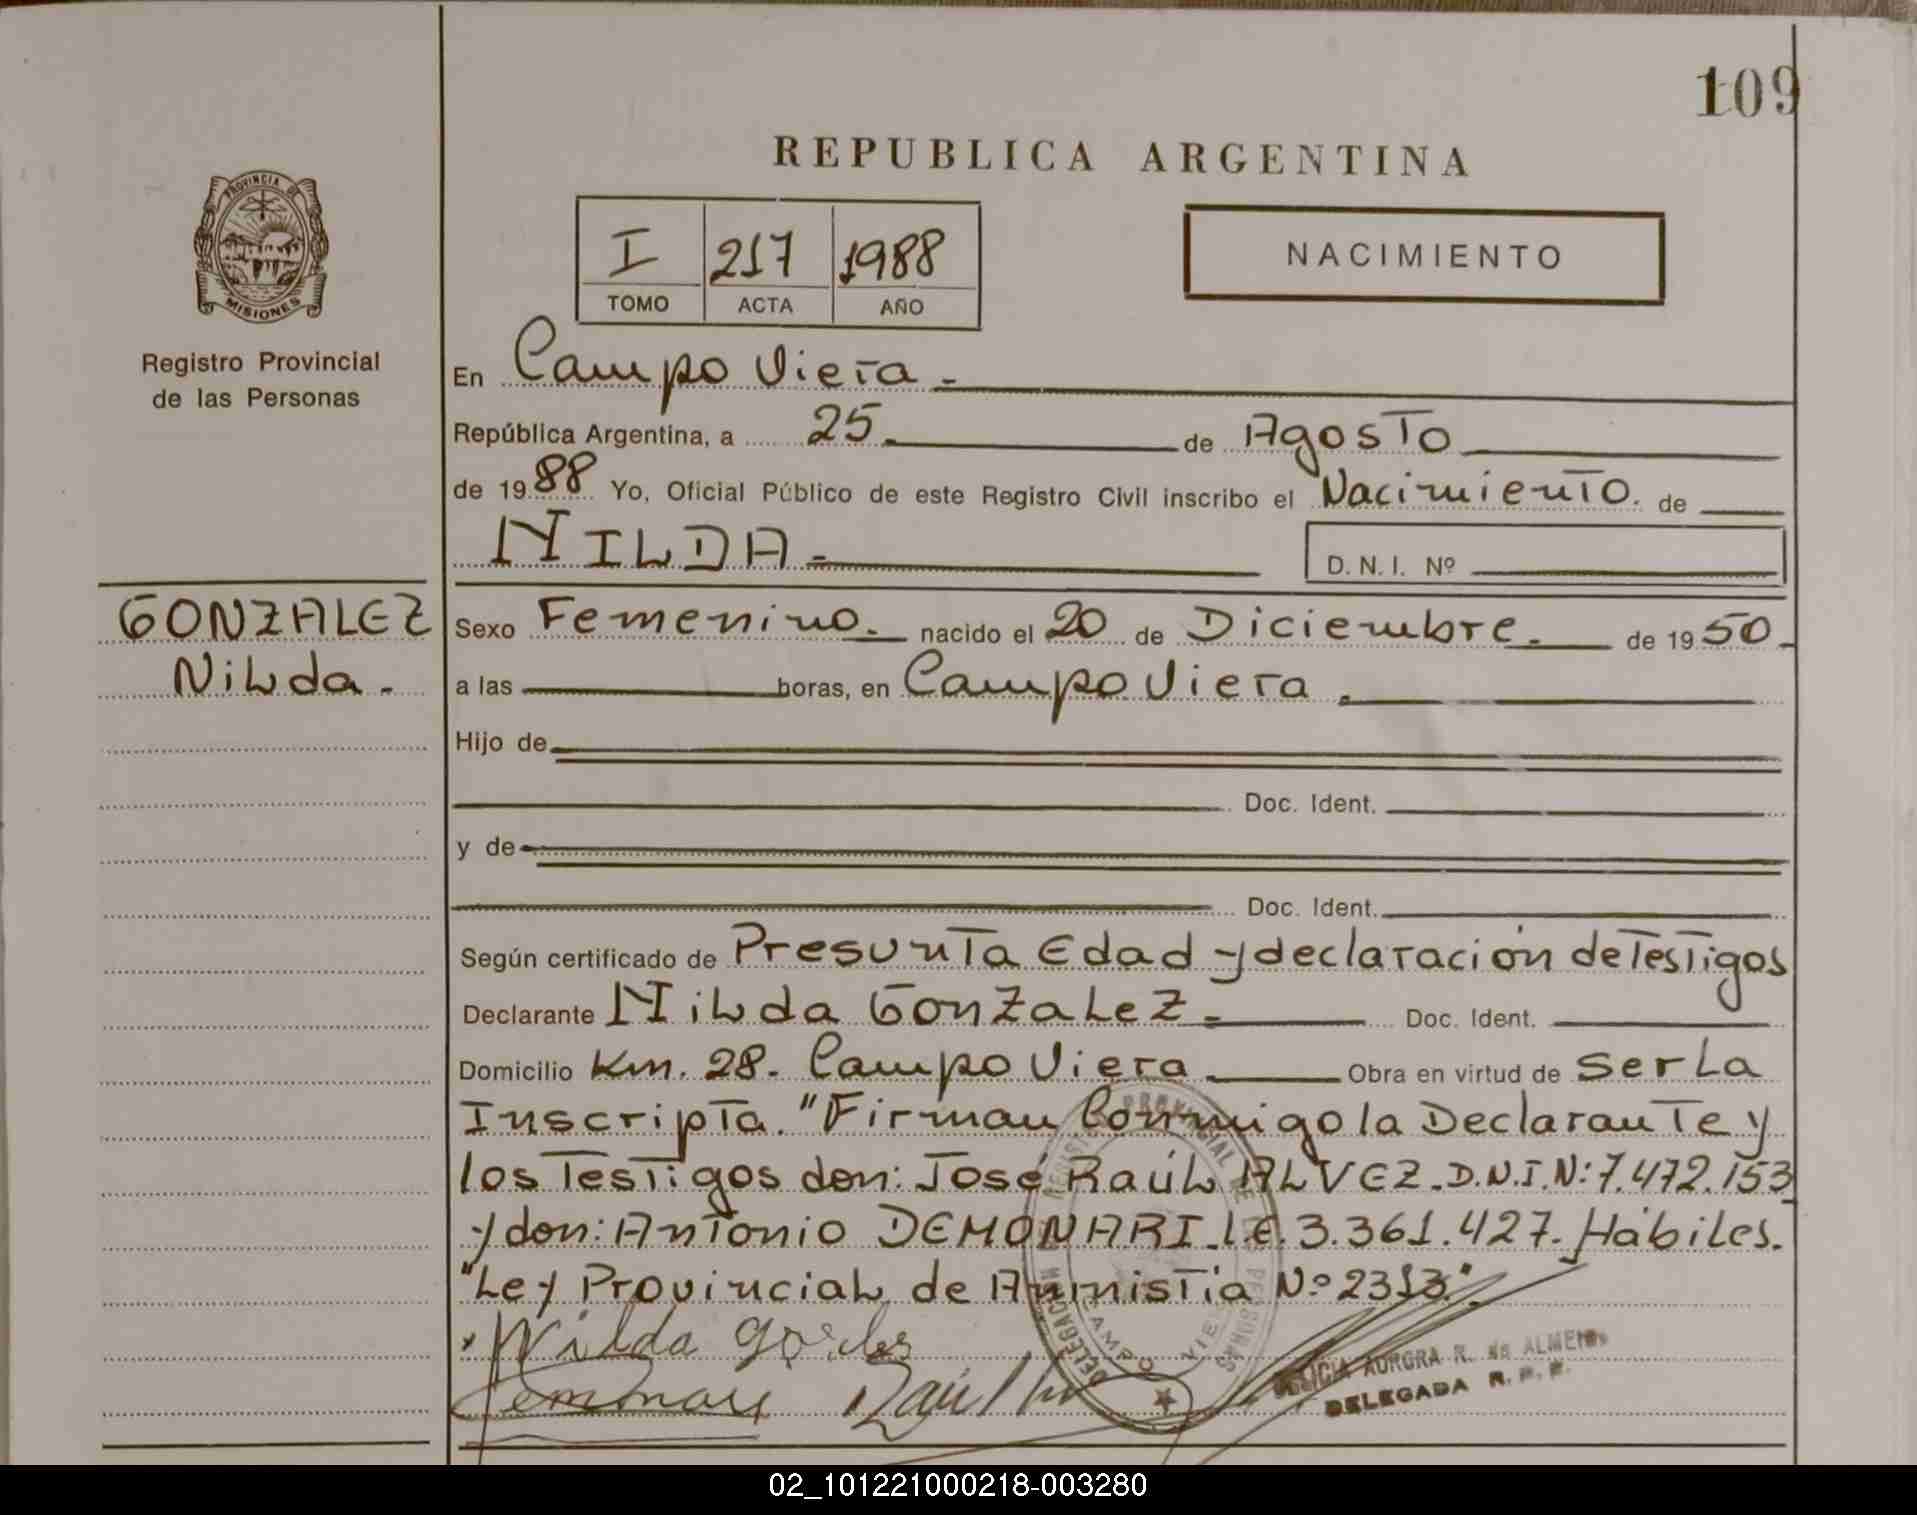 109
REPUBLICA ARGENTINA
PROVINCIA DE
MISIONES
Registro Provincial
de las Personas
I 217 1988
TOMO ACTA AÑO
NACIMIENTO
En Campo Viera.
República Argentina, a 25 de Agosto
de 1988 Yo, Oficial Público de este Registro Civil inscribo el Nacimiento. de
NILDA
D. N. I. Nº
GONZALEZ
Nilda.
Sexo Femenino. nacido el 20 de Diciembre. de 1950.
a las horas, en Campo Viera.
Hijo de
Doc. Ident.
y de
Doc. Ident.
Según certificado de Presunta Edad y declaración de Testigos
Declarante Nilda Gonzalez. Doc. Ident.
Domicilio Km. 28. Campo Viera Obra en virtud de ser La
Inscripta. "Firman Conmigo la Declarante y
los Testigos don: José Raúl ALVEZ. D.N.I.N: 7.472.153
y don: Antonio DEMONARI. L.E. 3.361.427. Hábiles.
"Ley Provincial de Amnistía Nº 2313".
Nilda
Raúl
AURORA R. de ALMEIDA
DELEGADA R. P. P.
02_101221000218-003280